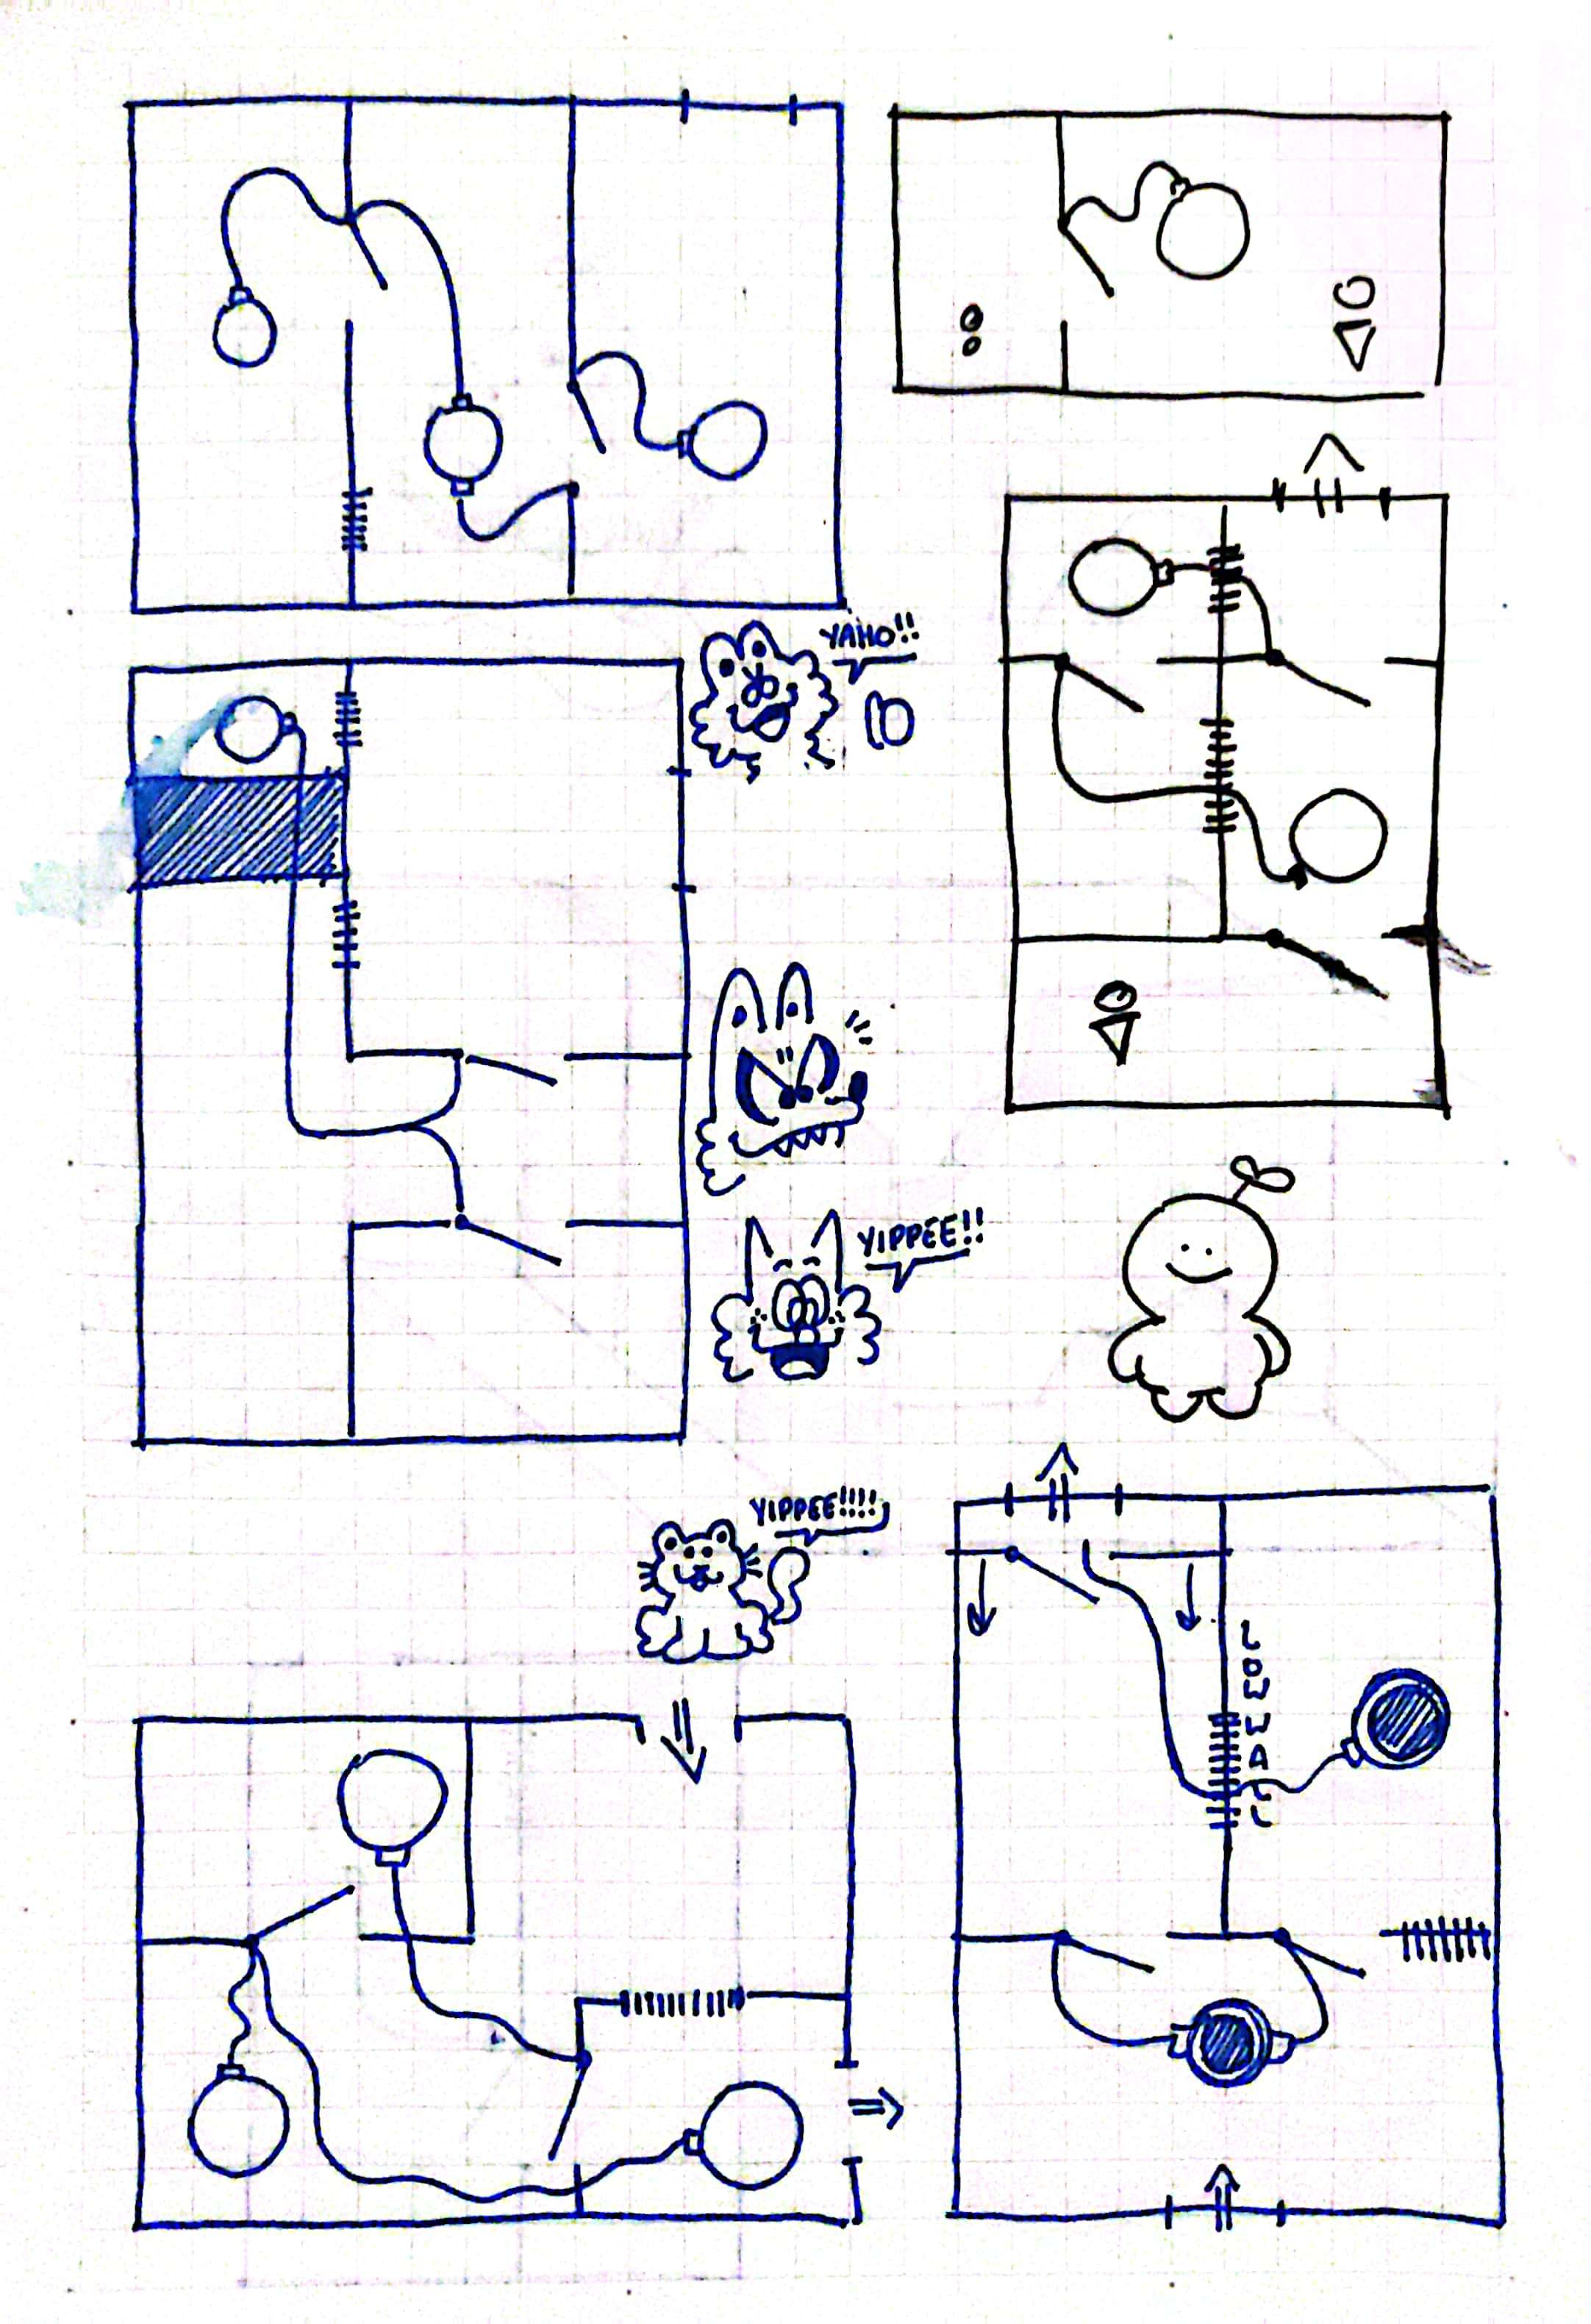 YAHO!!
YIPPEE!!
YIPPEE!!!!
LOW WALL